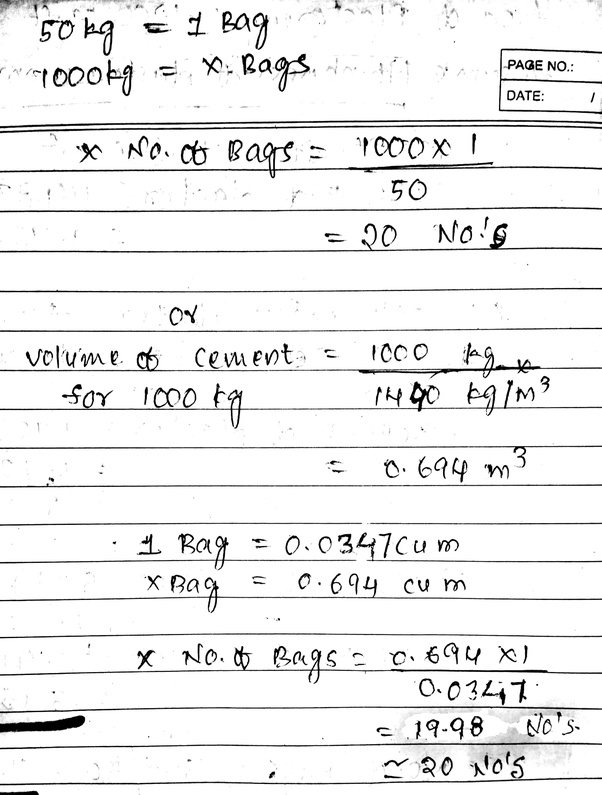 50 kg = 1 Bag
1000kg = x. Bags
PAGE NO.:
DATE: /
x No. of Bags = 1000 x 1
50
= 20 No's
or
volume of cement = 1000 kg x
for 1000 kg 1440 kg/m³
= 0.694 m³
1 Bag = 0.0347 cu m
x Bag = 0.694 cu m
x No. of Bags = 0.694 x1
0.0347
= 19.98 No's.
≃ 20 No's